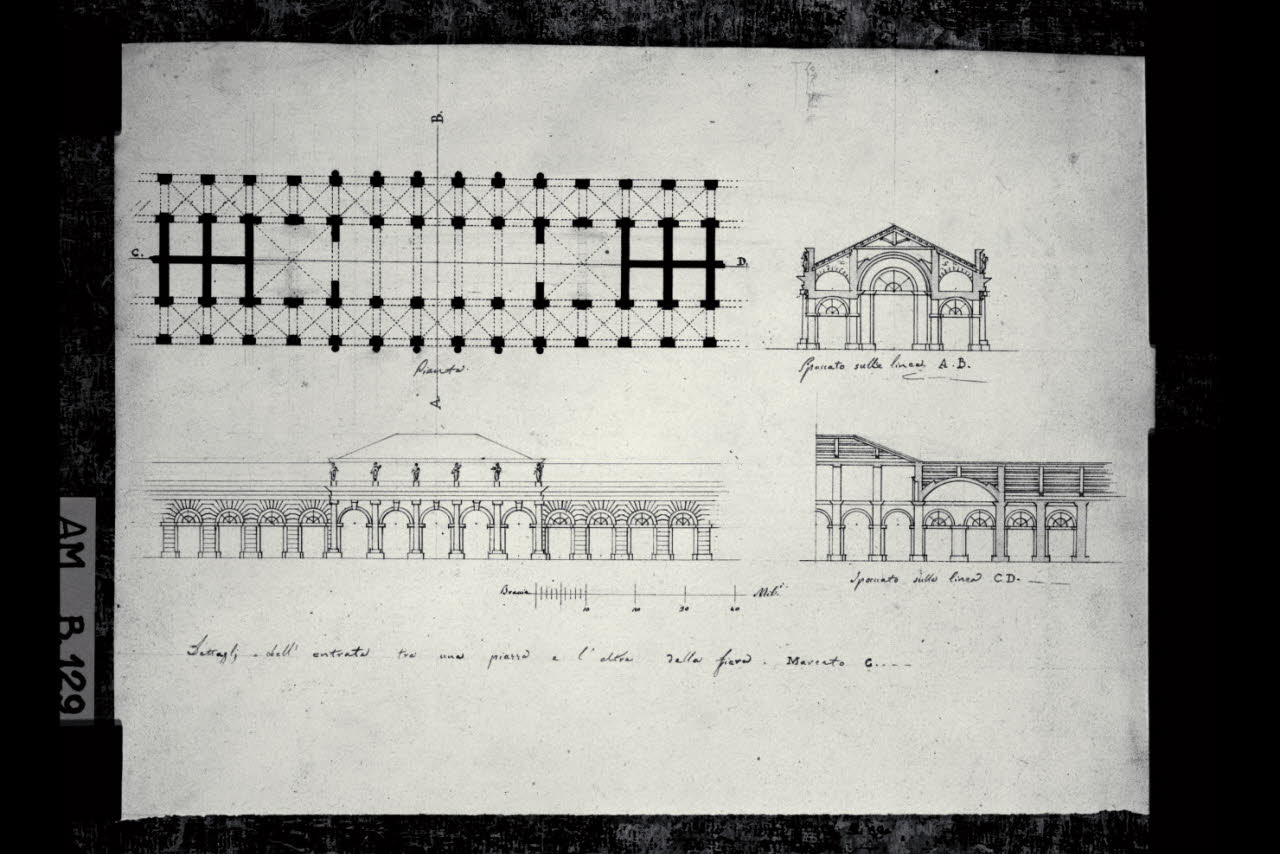 B.
C.
D.
Pianta.
A.
Spaccato sulla linea A.B.
Spaccato sulla linea C D.
Braccia 10 20 30 40 Mil.i
Dettaglj dell' entrata tra una piazza e l' altra della fiera. Marcato G....
AM B.129